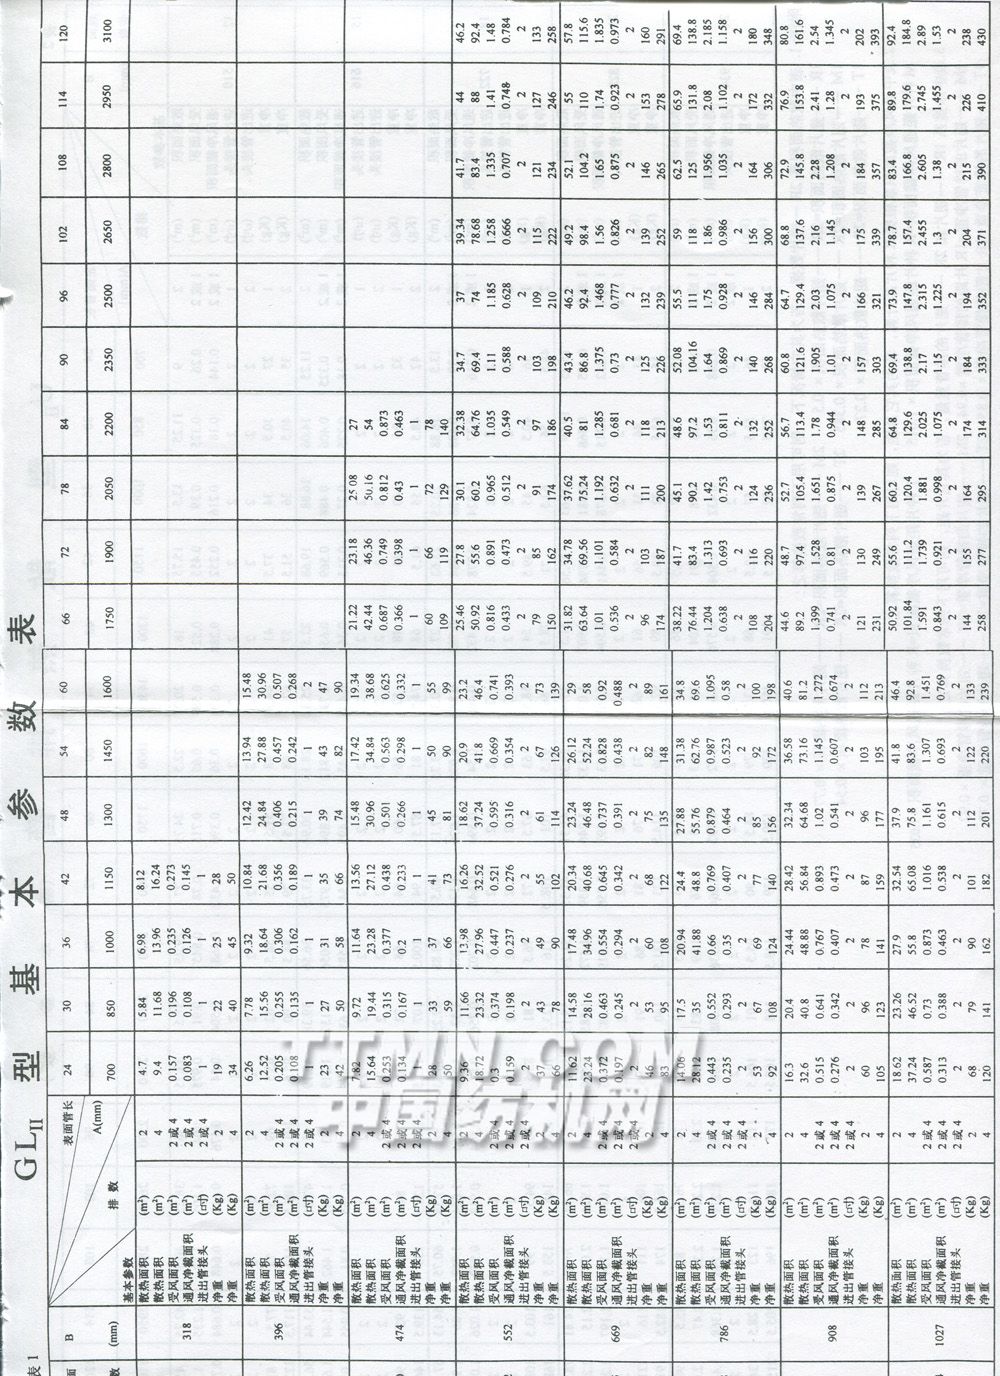 表1
GL II 型基本参数表
面 B 表面管长 24 30 36 42 48 54 60 66 72 78 84 90 96 102 108 114 120
数 (mm) 基本参数 排数 A(mm) 700 850 1000 1150 1300 1450 1600 1750 1900 2050 2200 2350 2500 2650 2800 2950 3100
318
散热面积 (m²) 2 4.7 5.84 6.98 8.12
散热面积 (m²) 4 9.4 11.68 13.96 16.24
受风面积 (m²) 2或4 0.157 0.196 0.235 0.273
通风净截面积 (m²) 2或4 0.083 0.108 0.126 0.145
进出管接头 (吋) 2或4 1 1 1 1
净重 (Kg) 2 19 22 25 28
净重 (Kg) 4 34 40 45 50
396
散热面积 (m²) 2 6.26 7.78 9.32 10.84 12.42 13.94 15.48
散热面积 (m²) 4 12.52 15.56 18.64 21.68 24.84 27.88 30.96
受风面积 (m²) 2或4 0.205 0.255 0.306 0.356 0.406 0.457 0.507
通风净截面积 (m²) 2或4 0.108 0.135 0.162 0.189 0.215 0.242 0.268
进出管接头 (吋) 2或4 1 1 1 1 1 1 2
净重 (Kg) 2 23 27 31 35 39 43 47
净重 (Kg) 4 42 50 58 66 74 82 90
474
散热面积 (m²) 2 7.82 9.72 11.64 13.56 15.48 17.42 19.34 21.22 23.18 25.08 27
散热面积 (m²) 4 15.64 19.44 23.28 27.12 30.96 34.84 38.68 42.44 46.36 50.16 54
受风面积 (m²) 2或4 0.253 0.315 0.377 0.438 0.501 0.563 0.625 0.687 0.749 0.812 0.873
通风净截面积 (m²) 2或4 0.134 0.167 0.2 0.233 0.266 0.298 0.332 0.366 0.398 0.43 0.463
进出管接头 (吋) 2或4 1 1 1 1 1 1 1 1 1 1
净重 (Kg) 2 28 33 37 41 45 50 55 60 66 72 78
净重 (Kg) 4 50 59 66 73 81 90 99 109 119 129 140
552
散热面积 (m²) 2 9.36 11.66 13.98 16.26 18.62 20.9 23.2 25.46 27.8 30.1 32.38 34.7 37 39.34 41.7 44 46.2
散热面积 (m²) 4 18.72 23.32 27.96 32.52 37.24 41.8 46.4 50.92 55.6 60.2 64.76 69.4 74 78.68 83.4 88 92.4
受风面积 (m²) 2或4 0.3 0.374 0.447 0.521 0.595 0.669 0.741 0.816 0.891 0.965 1.035 1.11 1.185 1.258 1.335 1.41 1.48
通风净截面积 (m²) 2或4 0.159 0.198 0.237 0.276 0.316 0.354 0.393 0.433 0.473 0.512 0.549 0.588 0.628 0.666 0.707 0.748 0.784
进出管接头 (吋) 2或4 2 2 2 2 2 2 2 2 2 2 2 2 2 2 2 2
净重 (Kg) 2 37 43 49 55 61 67 73 79 85 91 97 103 109 115 121 127 133
净重 (Kg) 4 66 78 90 102 114 126 139 150 162 174 186 198 210 222 234 246 258
669
散热面积 (m²) 2 11.62 14.58 17.48 20.34 23.24 26.12 29 31.82 34.78 37.62 40.5 43.4 46.2 49.2 52.1 55 57.8
散热面积 (m²) 4 23.24 28.16 34.96 40.68 46.48 52.24 58 63.64 69.56 75.24 81 86.8 92.4 98.4 104.2 110 115.6
受风面积 (m²) 2或4 0.372 0.463 0.554 0.645 0.737 0.828 0.92 1.01 1.101 1.192 1.285 1.375 1.468 1.56 1.65 1.74 1.835
通风净截面积 (m²) 2或4 0.197 0.245 0.294 0.342 0.391 0.438 0.488 0.536 0.584 0.632 0.681 0.73 0.777 0.826 0.875 0.923 0.973
进出管接头 (吋) 2或4 2 2 2 2 2 2 2 2 2 2 2 2 2 2 2 2
净重 (Kg) 2 46 53 60 68 75 82 89 96 103 111 118 125 132 139 146 153 160
净重 (Kg) 4 83 95 108 122 135 148 161 174 187 200 213 226 239 252 265 278 291
786
散热面积 (m²) 2 14.06 17.5 20.94 24.4 27.88 31.38 34.8 38.22 41.7 45.1 48.6 52.08 55.5 59 62.5 65.9 69.4
散热面积 (m²) 4 28.12 35 41.88 48.8 55.76 62.76 69.6 76.44 83.4 90.2 97.2 104.16 111 118 125 131.8 138.8
受风面积 (m²) 2或4 0.443 0.552 0.66 0.769 0.879 0.987 1.095 1.204 1.313 1.42 1.53 1.64 1.75 1.86 1.956 2.08 2.185
通风净截面积 (m²) 2或4 0.235 0.293 0.35 0.407 0.464 0.523 0.58 0.638 0.693 0.753 0.811 0.869 0.928 0.986 1.035 1.102 1.158
进出管接头 (吋) 2或4 2 2 2 2 2 2 2 2 2 2 2 2 2 2 2 2 2
净重 (Kg) 2 53 67 69 77 85 92 100 108 116 124 132 140 146 156 164 172 180
净重 (Kg) 4 92 108 124 140 156 172 198 204 220 236 252 268 284 300 306 332 348
908
散热面积 (m²) 2 16.3 20.4 24.44 28.42 32.34 36.58 40.6 44.6 48.7 52.7 56.7 60.8 64.7 68.8 72.9 76.9 80.8
散热面积 (m²) 4 32.6 40.8 48.88 56.84 64.68 73.16 81.2 89.2 97.4 105.4 113.4 121.6 129.4 137.6 145.8 153.8 161.6
受风面积 (m²) 2或4 0.515 0.641 0.767 0.893 1.02 1.145 1.272 1.399 1.528 1.651 1.78 1.905 2.03 2.16 2.28 2.41 2.54
通风净截面积 (m²) 2或4 0.276 0.342 0.407 0.473 0.541 0.607 0.674 0.741 0.81 0.875 0.944 1.01 1.075 1.145 1.208 1.28 1.345
进出管接头 (吋) 2或4 2 2 2 2 2 2 2 2 2 2 2 2 2 2 2 2 2
净重 (Kg) 2 60 96 78 87 96 103 112 121 130 139 148 157 166 175 184 193 202
净重 (Kg) 4 105 123 141 159 177 195 213 231 249 267 285 303 321 339 357 375 393
1027
散热面积 (m²) 2 18.62 23.26 27.9 32.54 37.9 41.8 46.4 50.92 55.6 60.2 64.8 69.4 73.9 78.7 83.4 89.8 92.4
散热面积 (m²) 4 37.24 46.52 55.8 65.08 75.8 83.6 92.8 101.84 111.2 120.4 129.6 138.8 147.8 157.4 166.8 179.6 184.8
受风面积 (m²) 2或4 0.587 0.73 0.873 1.016 1.161 1.307 1.451 1.591 1.739 1.881 2.025 2.17 2.315 2.455 2.605 2.745 2.89
通风净截面积 (m²) 2或4 0.313 0.388 0.463 0.538 0.615 0.693 0.769 0.843 0.921 0.998 1.075 1.15 1.225 1.3 1.38 1.455 1.53
进出管接头 (吋) 2或4 2 2 2 2 2 2 2 2 2 2 2 2 2 2 2 2 2
净重 (Kg) 2 68 79 90 101 112 122 133 144 155 164 174 184 194 204 215 226 238
净重 (Kg) 4 120 141 162 182 201 220 239 258 277 295 314 333 352 371 390 410 430
TTMN.COM
中国纺机网